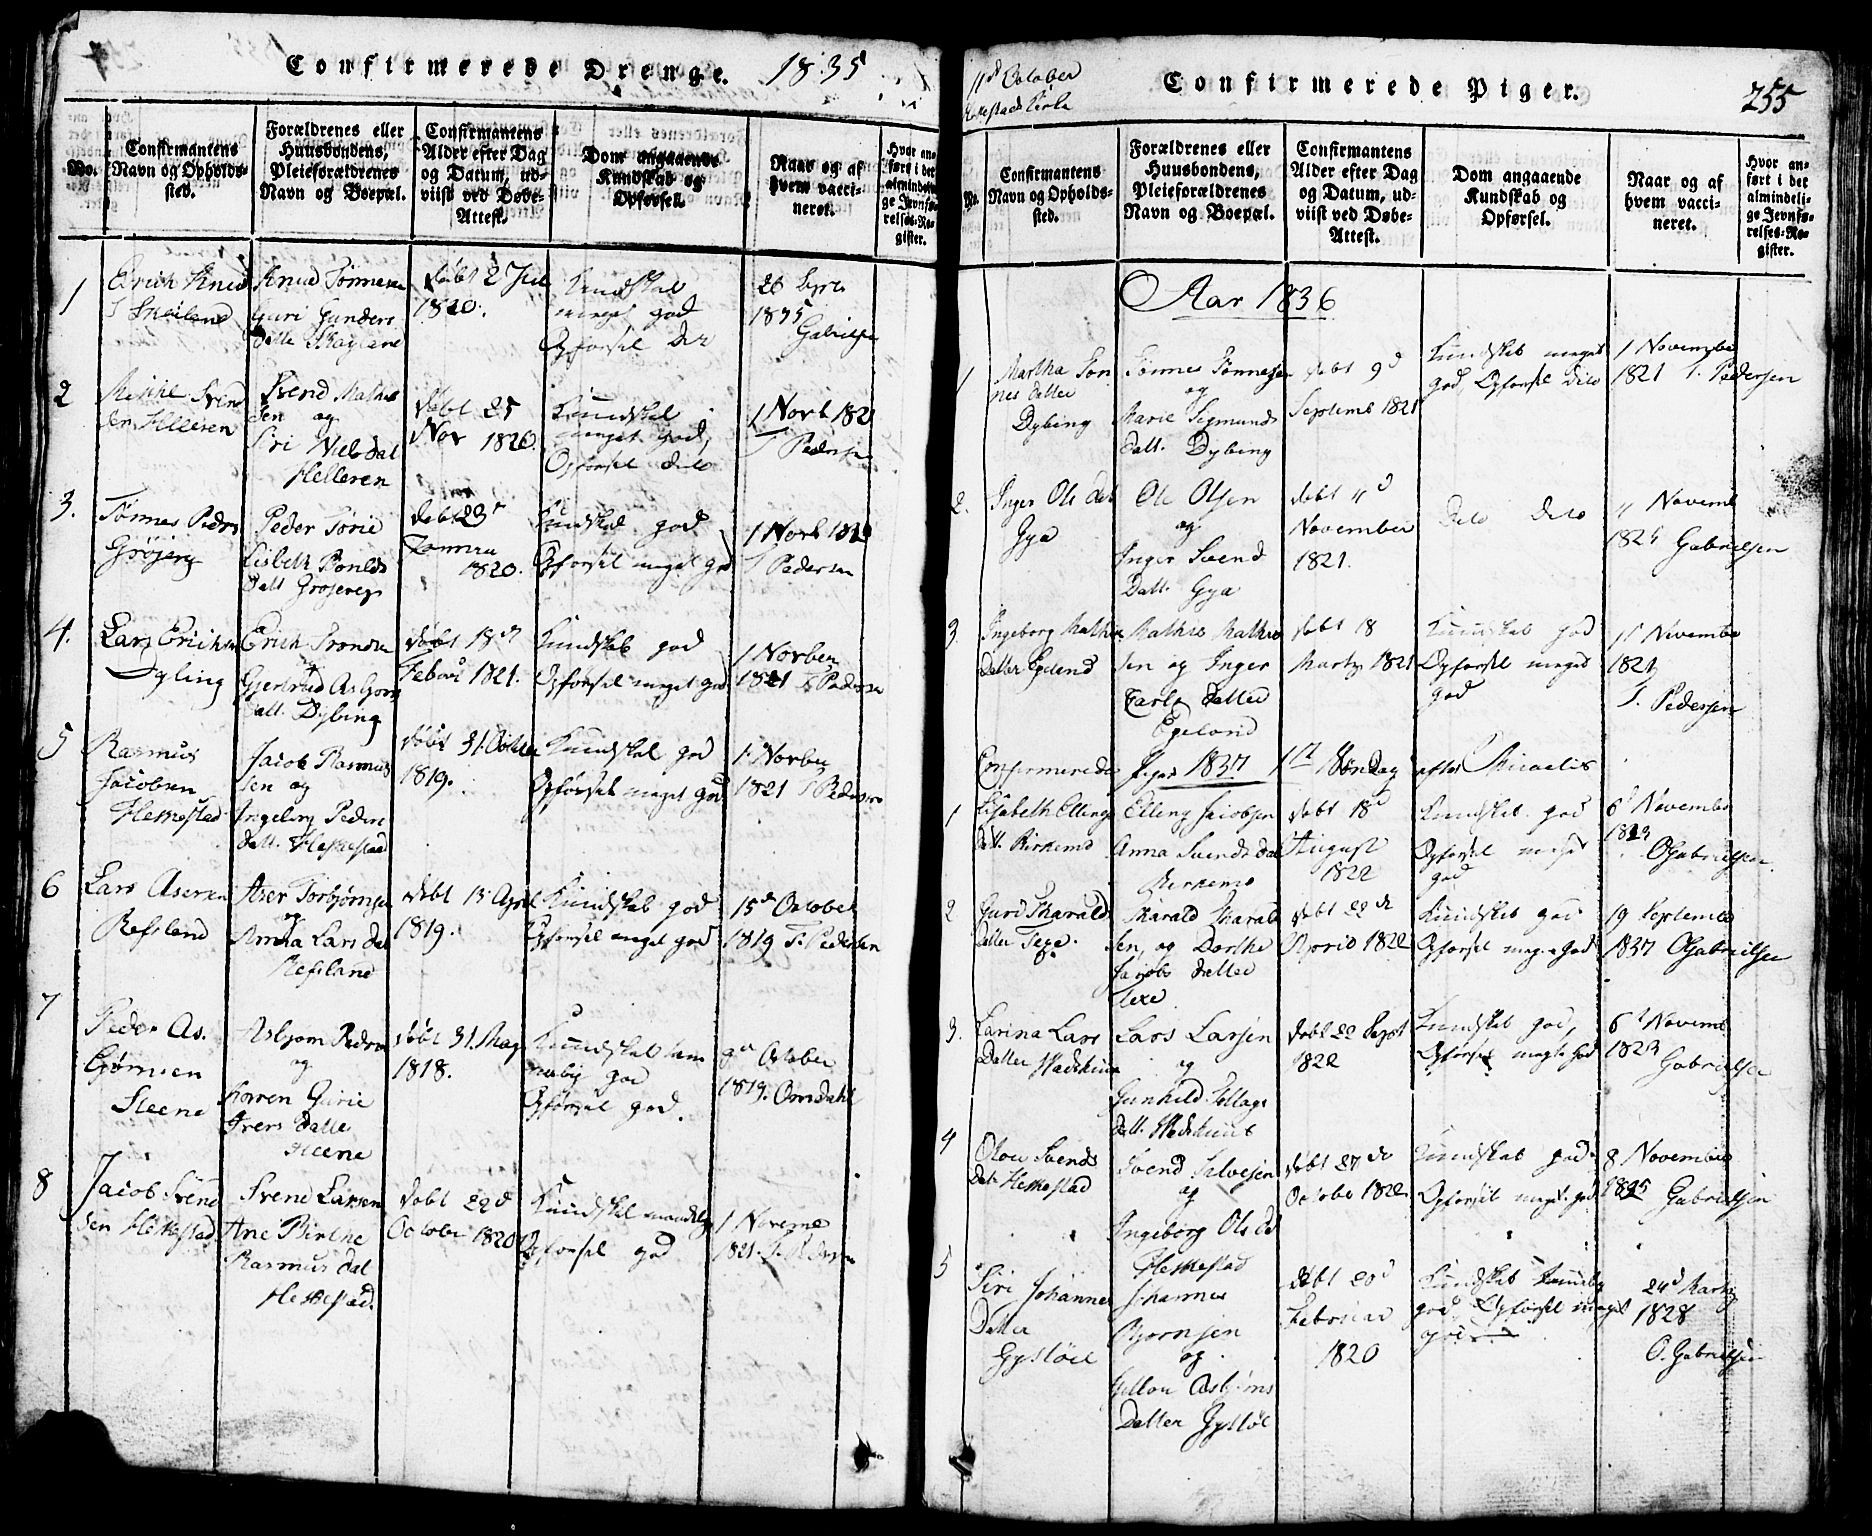 Confirmerede Drenge. 1835
No.
Confirmantens
Navn og Opholds-
sted.
Forældrenes eller
Huusbondens,
Pleieforældrenes
Navn og Boepæl.
Confirmantens
Alder efter Dag
og Datum, ud-
viist ved Døbe-
Attest.
Dom angaaende
Kundskab og
Opførsel.
Naar og af
hvem vacci-
neret.
Hvor an-
ført i det
almindeli-
ge Jevnfø-
relses-Re-
gister.
1
Erich Knud
Knud Tønnesen
Guri Gunders
Datte Skagland
døbt 2 Jul
1820.
Kundskab
meget god
Opførsel
1835
2
Svend
sen Helleren
Svend Mathis
sen og
Siri Niels dat
Helleren
døbt 25
Nov 1820
Kundskab
meget god,
Opførsel dito
1 Novb 1821
T Pedersen
3.
Tønnes Peders
Peder Tørie
Lisbeth
Datt
døbt 23
1820.
Kundskab god
Opførsel meget god
1 Novb
T Pedersen
4.
Lars Erichsen
Dybing
Erich Svendsen
Gjertrud Asbjørns
Datt. Dybing
døbt 18de
Febru 1821.
Kundskab god
Opførsel meget god
1 Novber
1821 T Pedersen
5
Rasmus
Jacobsen
Heskestad
Jacob Rasmus
sen og
Ingeborg Peders
datt. Heskestad
døbt 31. Octobr
1819.
Kundskab god
Opførsel meget god
1 Novber
1821 T Pedersen
6
Lars Asersen
Refsland
Aser Torbjørnsen
og
Anna Lars dat
Refsland
døbt 13 April
1819.
Kundskab god
Opførsel meget god
15de October
1819 T. Pedersen
7
Peder As.
bjørnsen
Steene
Asbjørn Pedersen
og
Gurie
Ivers datte
Steene
døbt 31. May
1818.
Kundskab tem
melig god
Opførsel god.
October
1819. Omdahl
8
Jacob Svend
sen Heskestad
Svend Larsen
Ane Birthe
Rasmus dat
Heskestad.
døbt 22d
October 1820
Kundskab maadelig
Opførsel god
1 Novemb
1821. T. Pedersen
11d October
Heskestads Kirke
Confirmerede Piger.
255
No.
Confirmantens
Navn og Opholds-
sted.
Forældrenes eller
Huusbondens,
Pleieforældrenes
Navn og Boepæl.
Confirmantens
Alder efter Dag
og Datum, ud-
viist ved Døbe-
Attest.
Dom angaaende
Kundskab og
Opførsel.
Naar og af
hvem vacci-
neret.
Hvor an-
ført i det
almindeli-
ge Jevnfø-
relses-Re-
gister.
Aar 1836
1
Martha Tøn
nes datter
Dybing
Tønnes Tønnesen
og
Marie Sigmunds
datt. Dybing
døbt 9d
Septemb 1821
Kundskab meget
god, Opførsel dito
1 Novembr
1821 T. Pedersen
2.
Inger Ols dat
Gya
Ole Olsen
og
Inger Svend
Datt. Gya
døbt 11d
November
1821.
dito dito
11 Novemb
Gabrielsen
3
Ingeborg Mathis
datter Egeland
Mathis Mathis
sen og Inger
Carls datter
Egeland
døbt 18
Marts 1821
Kundskab god
Opførsel meget
god
11 November
1821
T. Pedersen
Confirmerede Piger 1837 1ste Søndag efter Micaelis
1
Elisabeth Ellings
datt. Birkemo
Elling Jacobsen
Anna Svends dat
Birkemo
døbt 18d
August
1822
Kundskab god
Opførsel meget
god
6d November
1823
O Gabrielsen
2
Gurid Tharalds
datter Texe.
Tharald Tharald
sen, og Dorthe
Jacobs datter
Texe
døbt 22de
April 1822
Kundskab god
Opførsel meget god
19 Septembr
1837 O Gabrielsen
3.
Karina Lars
Datter
Lars Larsen
og
Gunhild
datt.
døbt 22 Sept
1822
Kundskab god,
Opførsel meget god
6d Novemb
1823
Gabrielsen
4
Olou Svends
Dat Heskestad
Svend Salvesen
og
Ingeborg Ols dt
Heskestad
døbt 27de
October 1822
Kundskab god
Opførsel meget god
8 November
1825 Gabrielsen
5
Siri Johannes
Datter
Gystøel
Johannes
Bjørnsen
og
Asbjørns
Datter Gystøl
døbt 20d
Februar
1820
Kundskab temmelig
god, Opførsel meget
god
24d Marts
1828
O. Gabrielsen